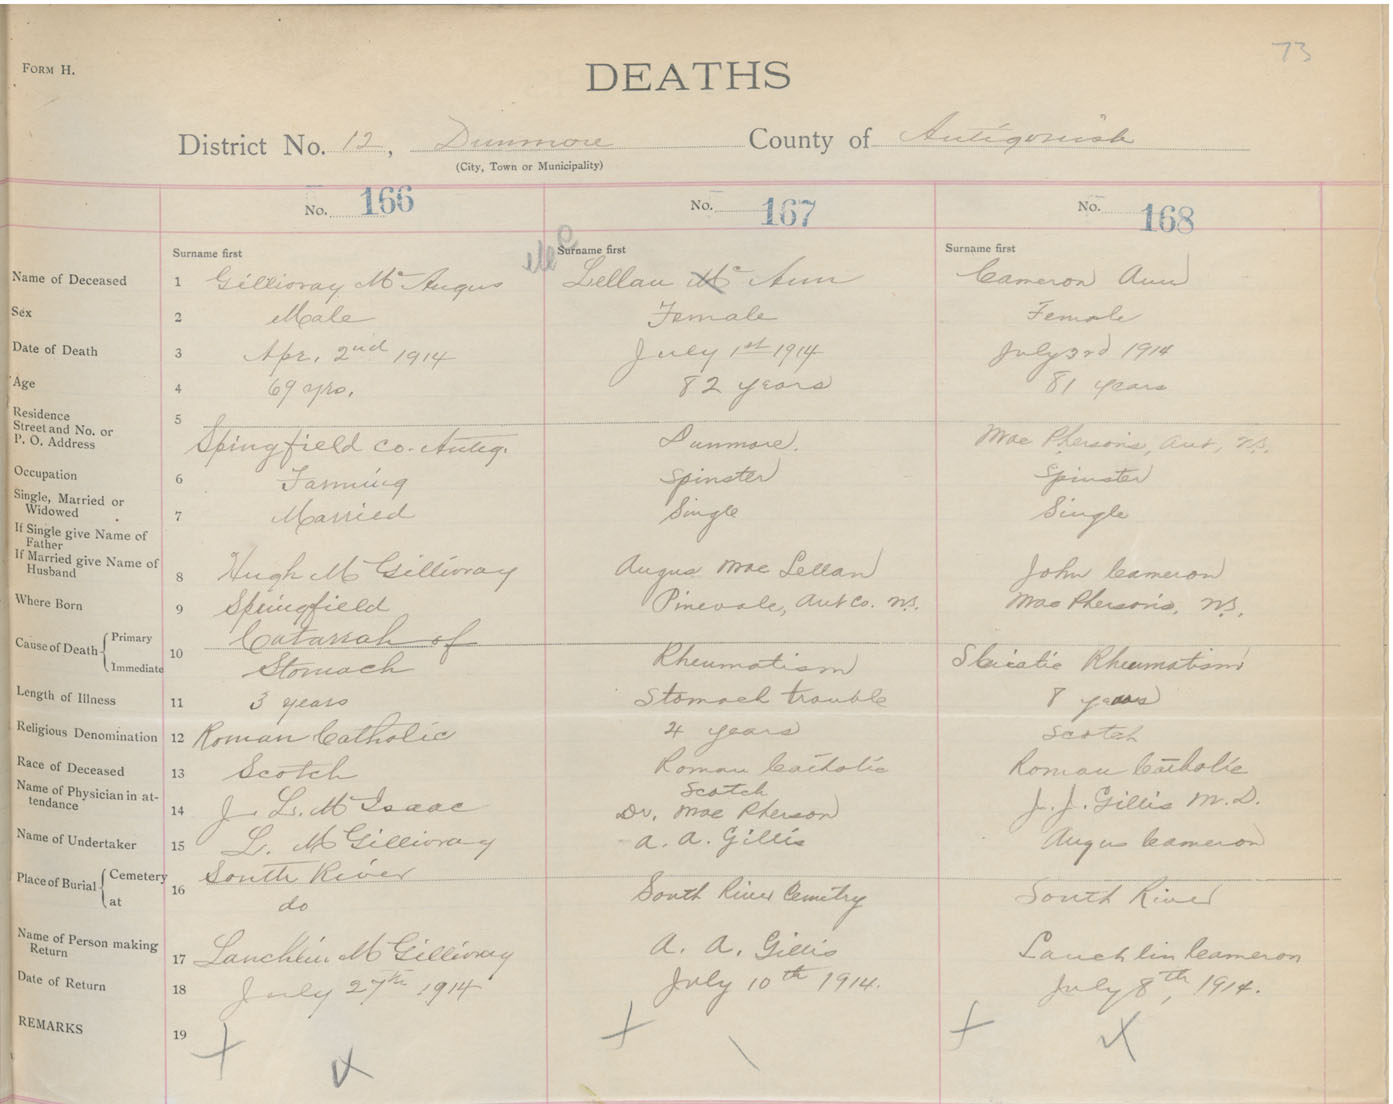 73
FORM H.
DEATHS
District No. 12, Dunmore County of Antigonish
(City, Town or Municipality)
No. 166 No. 167 No. 168
Surname first Mc Surname first Surname first
Name of Deceased 1 Gillivray Mc Angus Lellan Mc Ann Cameron Ann
Sex 2 Male Female Female
Date of Death 3 Apr. 2nd 1914 July 1st 1914 July 3rd 1914
Age 4 69 yrs. 82 years 81 years
Residence
Street and No. or
P. O. Address 5 Spingfield co. Antig. Dunmore. Mac Pherson's, Ant, N.S.
Occupation 6 Farming Spinster Spinster
Single, Married or
Widowed 7 Married Single Single
If Single give Name of
Father
If Married give Name of
Husband 8 Hugh McGillivray Angus Mac Lellan John Cameron
Where Born 9 Springfield Pinevale, Ant Co. N.S. Mac Pherson's, N.S.
Cause of Death { Primary Catarrah of
Immediate 10 Stomach Rheumatism Rheumatism
Length of Illness 11 3 years Stomach trouble 8 years
Religious Denomination 12 Roman Catholic 4 years Scotch
Race of Deceased 13 Scotch Roman Catholic Roman Catholic
Scotch
Name of Physician in at-
tendance 14 J. L. McIsaac Dr. Mac Pherson J. J. Gillis M.D.
Name of Undertaker 15 L. McGillivray A. A. Gillis Angus Cameron
Place of Burial { Cemetery South River
at 16 do South River Cemetry South River
Name of Person making
Return 17 Lauchlin McGillivray A. A. Gillis Lauchlin Cameron
Date of Return 18 July 27th 1914 July 10th 1914. July 8th, 1914.
REMARKS 19